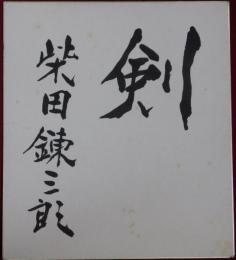 剣
柴田錬三郎